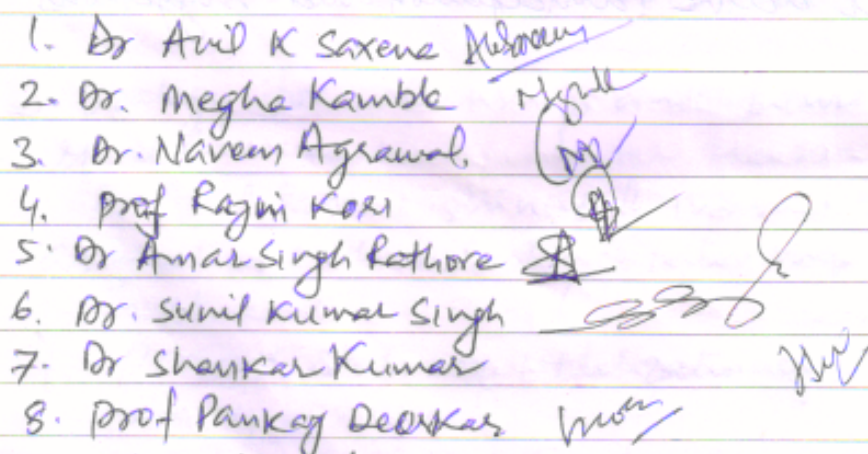 1. Dr Anil K Saxena
2. Dr. Megha Kamble
3. Dr. Naveen Agrawal
4. Prof Rajni Kori
5. Dr Amar Singh Rathore
6. Dr. Sunil Kumar Singh
7. Dr Shankar Kumar
8. Prof Pankaj Deoskar